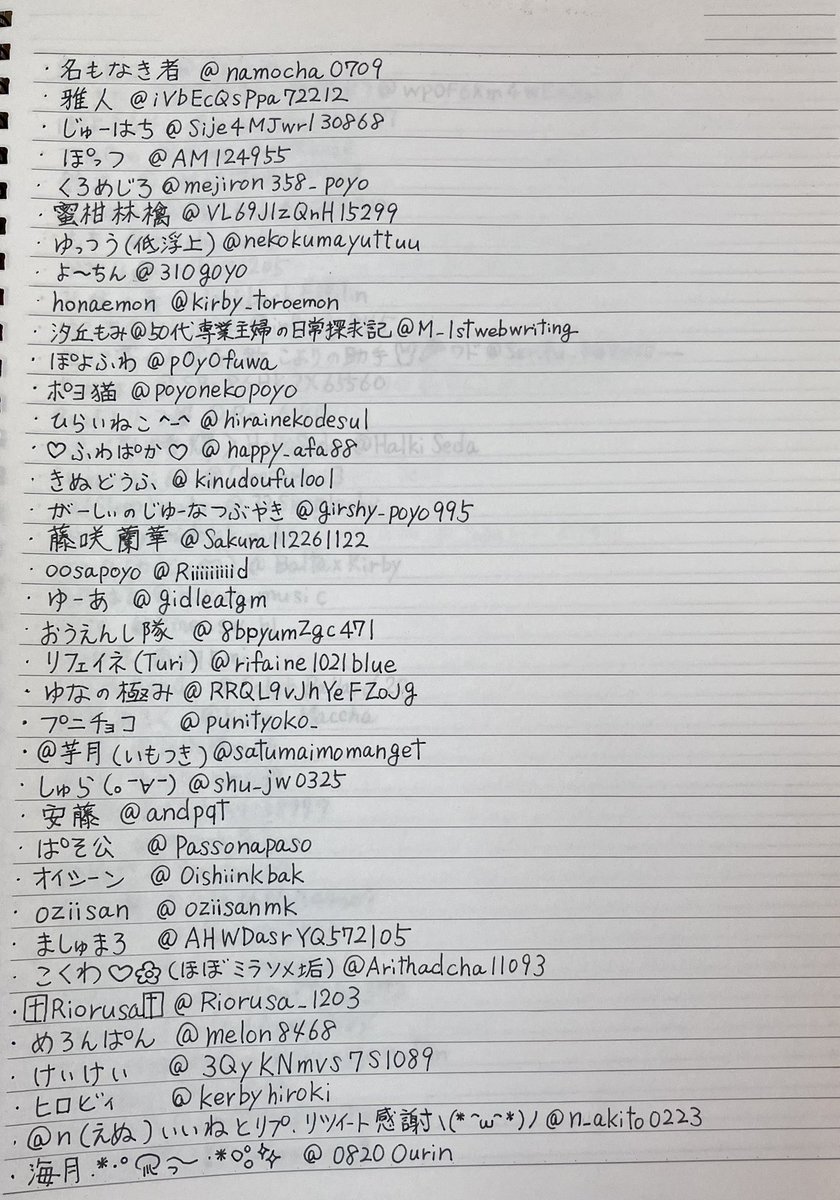 ・名もなき者 @namocha0709
・雅人 @iVbEcQsPpa72212
・じゅーはち @Sije4MJwrl30868
・ぽっつ @AM124955
・くろめじろ @mejiron358_poyo
・蜜柑林檎 @VL69JlzQnH15299
・ゆっつう(低浮上) @nekokumayuttuu
・よ〜ちん @310goyo
・honaemon @kirby_toroemon
・汐丘もみ@50代専業主婦の日常探求記 @M_1stwebwriting
・ぽよふわ @p0y0fuwa
・ポヨ猫 @poyonekopoyo
・ひらいねこ^-^ @hirainekodesu1
・♡ふわぱか♡ @happy_afa88
・きぬどうふ @kinudoufu1001
・がーしぃのじゅーなつぶやき @girshy_poyo995
・藤咲蘭華 @Sakura112261122
・oosapoyo @Riiiiiiiiid
・ゆーあ @gidleatgm
・おうえんし隊 @8bpyumZgc471
・リフェイネ(Turi) @rifaine1021blue
・ゆなの極み @RRQL9vJhYeFZoJg
・プニチョコ @punityoko_
・@芋月(いもつき) @satumaimomanget
・しゅら(｡ー∀ー) @shu_jw0325
・安藤 @andpqt
・ぱそ公 @Passonapaso
・オイシーン @Oishiinkbak
・oziisan @oziisanmk
・ましゅまろ @AHWDasrYQ572105
・こくわ♡(ほぼミラソメ垢) @Arithadcha11093
・Riorusa @Riorusa_1203
・めろんぱん @melon8468
・けぃけぃ @3QyKNmvs7S1089
・ヒロビィ @kerbyhiroki
・@n(えぬ)いいねとリプ.リツイート感謝ヽ(*^ω^*)ノ @n_akito0223
・海月 @0820Ourin